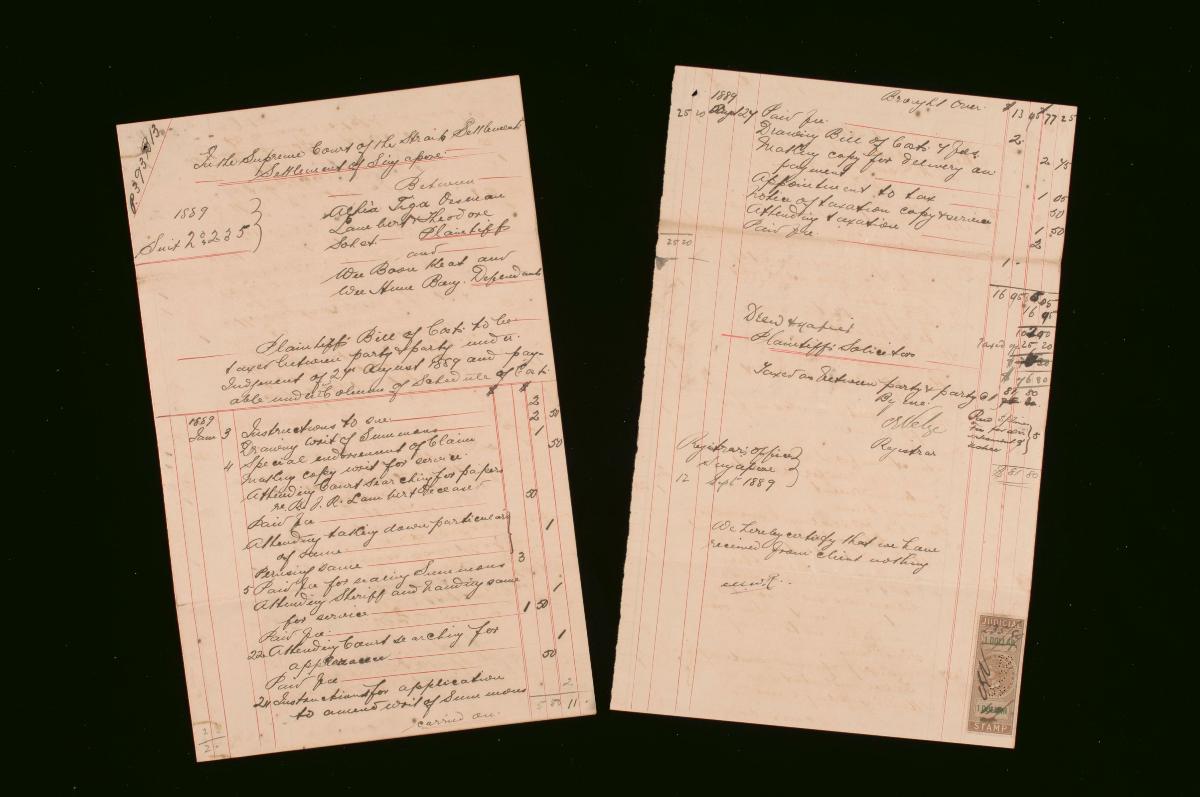 In the Supreme Court of the Straits Settlements
Settlement of Singapore
1889
Suit No 235
Between
Tiga Oesman
Lambert Theodore
Plaintiff
and
Wee Boon Keat and
Wee Hune Bang. Defendants
Plaintiffs Bill of Costs to be
taxed between party & party under
Judgment of 2nd August 1889 and pay-
able under Column of Schedule of Costs
$
1889
2
Jany 3 Instructions to sue 2 50
Drawing writ of Summons 1
Special endorsement of Claim 50
4 Making copy writ for service.
Attending Court searching for papers
re B. J. R. Lambert deceased
Paid fee 50
Attending taking down particulars
of same 1
Perusing same
5 Paid fee for sealing Summons 3
Attending Sheriff and handing same
for service 1
Paid fee 1 50
22 Attending Court searching for
appearance 1
Paid fee 50
24 Instructions for application
to amend writ of Summons 2
5 50 11 -
carried over
1889
Brought Over $ 13 95 77 25
25 20 24 Paid fee 2
Drawing Bill of Costs 4 fols 2
Making copy for delivery and
payment
Appointment to tax 1 05
Notice of taxation copy & service 50
Attending taxation 1 50
Paid fee 2
25 20
1 -
16 95
16 95
Taxed off 25 20
Drew & Napier
Plaintiffs Solicitors
$ 76 80
Taxed as between party & party at
By me.
Registrar
Registrar's Office
Singapore
12 Sept 1889
We hereby certify that we have
received from client nothing
JUDICIAL
1 DOLLAR
1 DOLLAR
STAMP